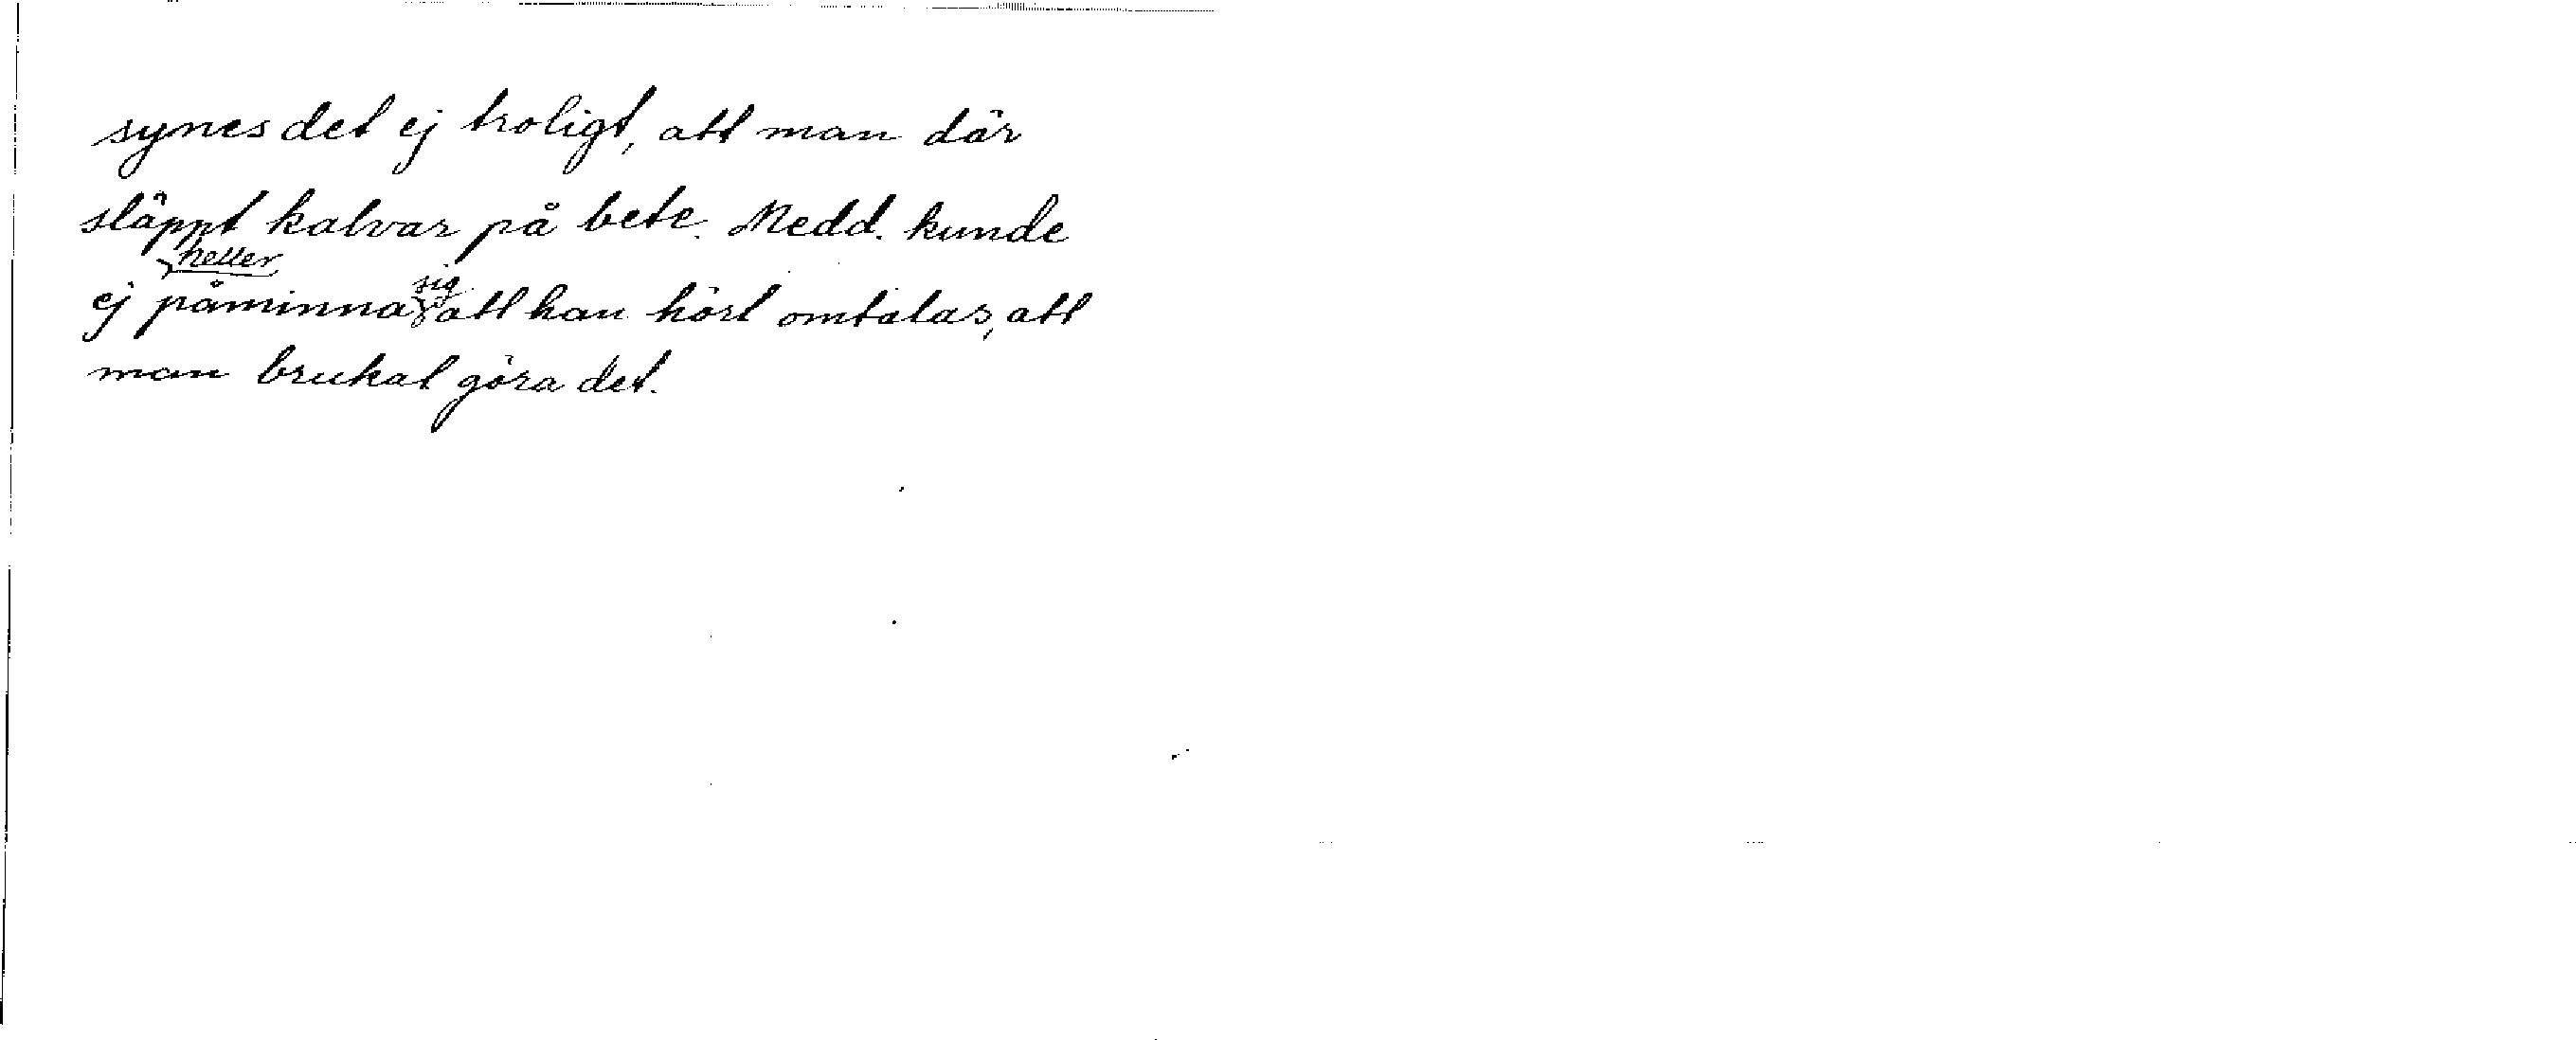 synes det ej troligt, att man där
släppt kalvar på bete. Medd. kunde
ej heller påminna sig att han hört omtalas, att
man brukat göra det.